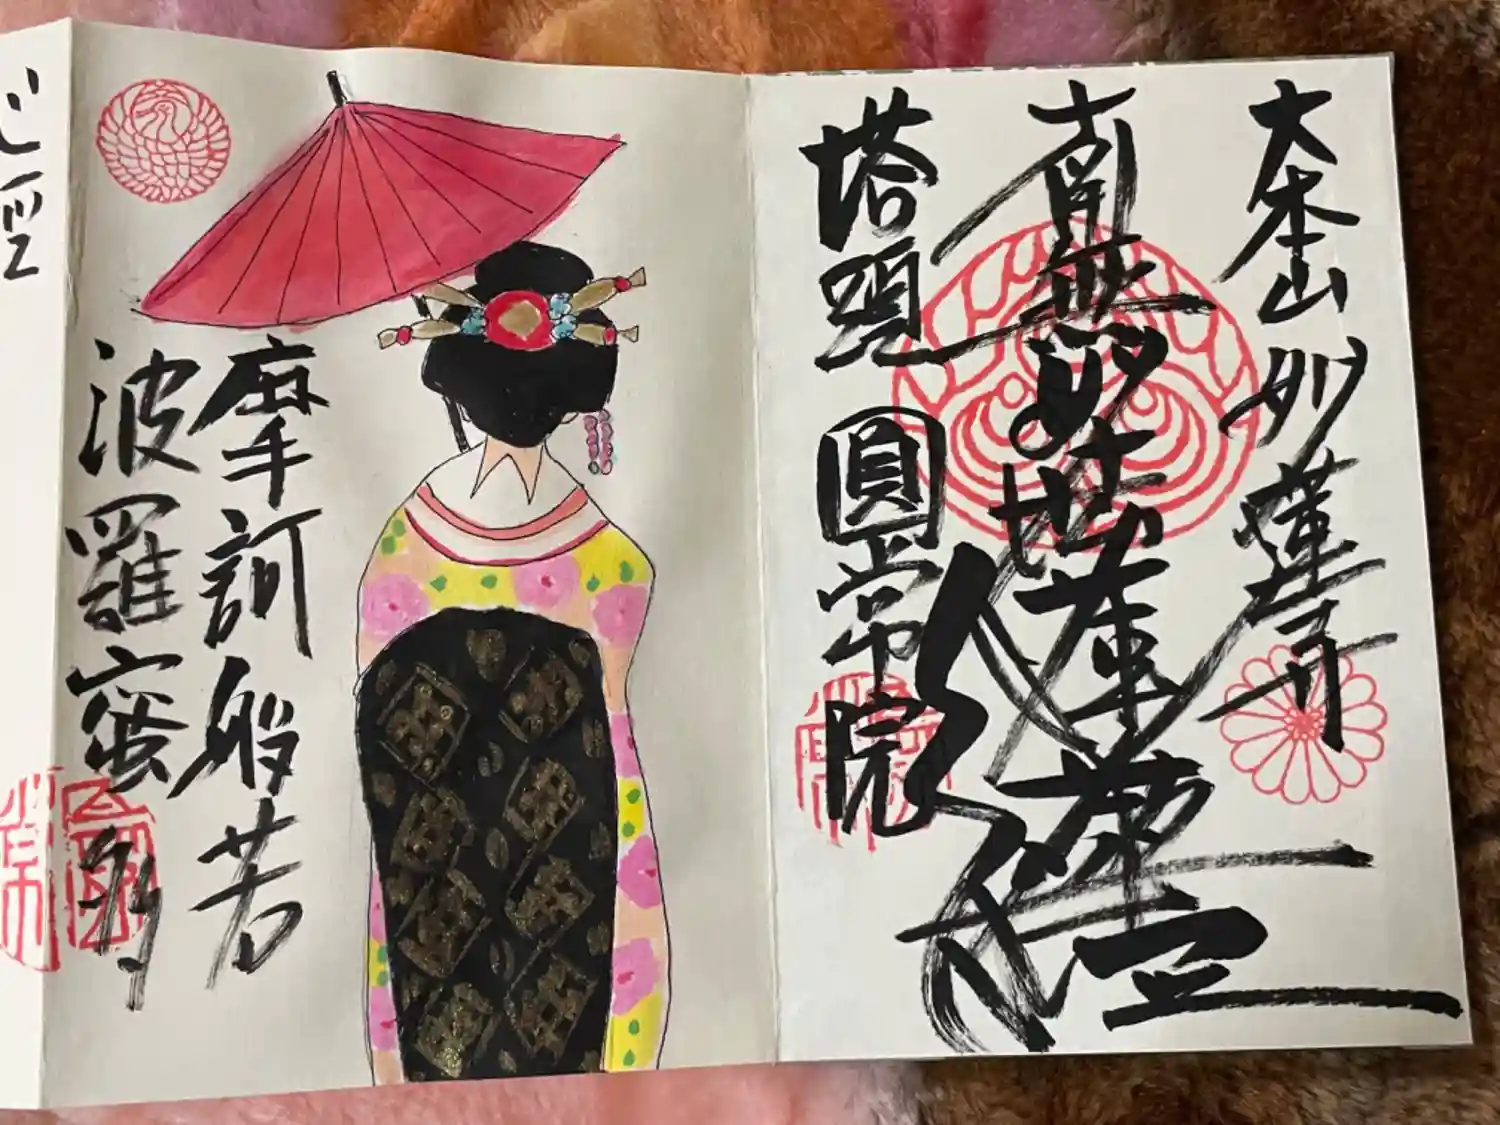 大本山 妙蓮寺
南無妙法蓮華経
塔頭 圓常院
摩訶般若
波羅蜜多
心経